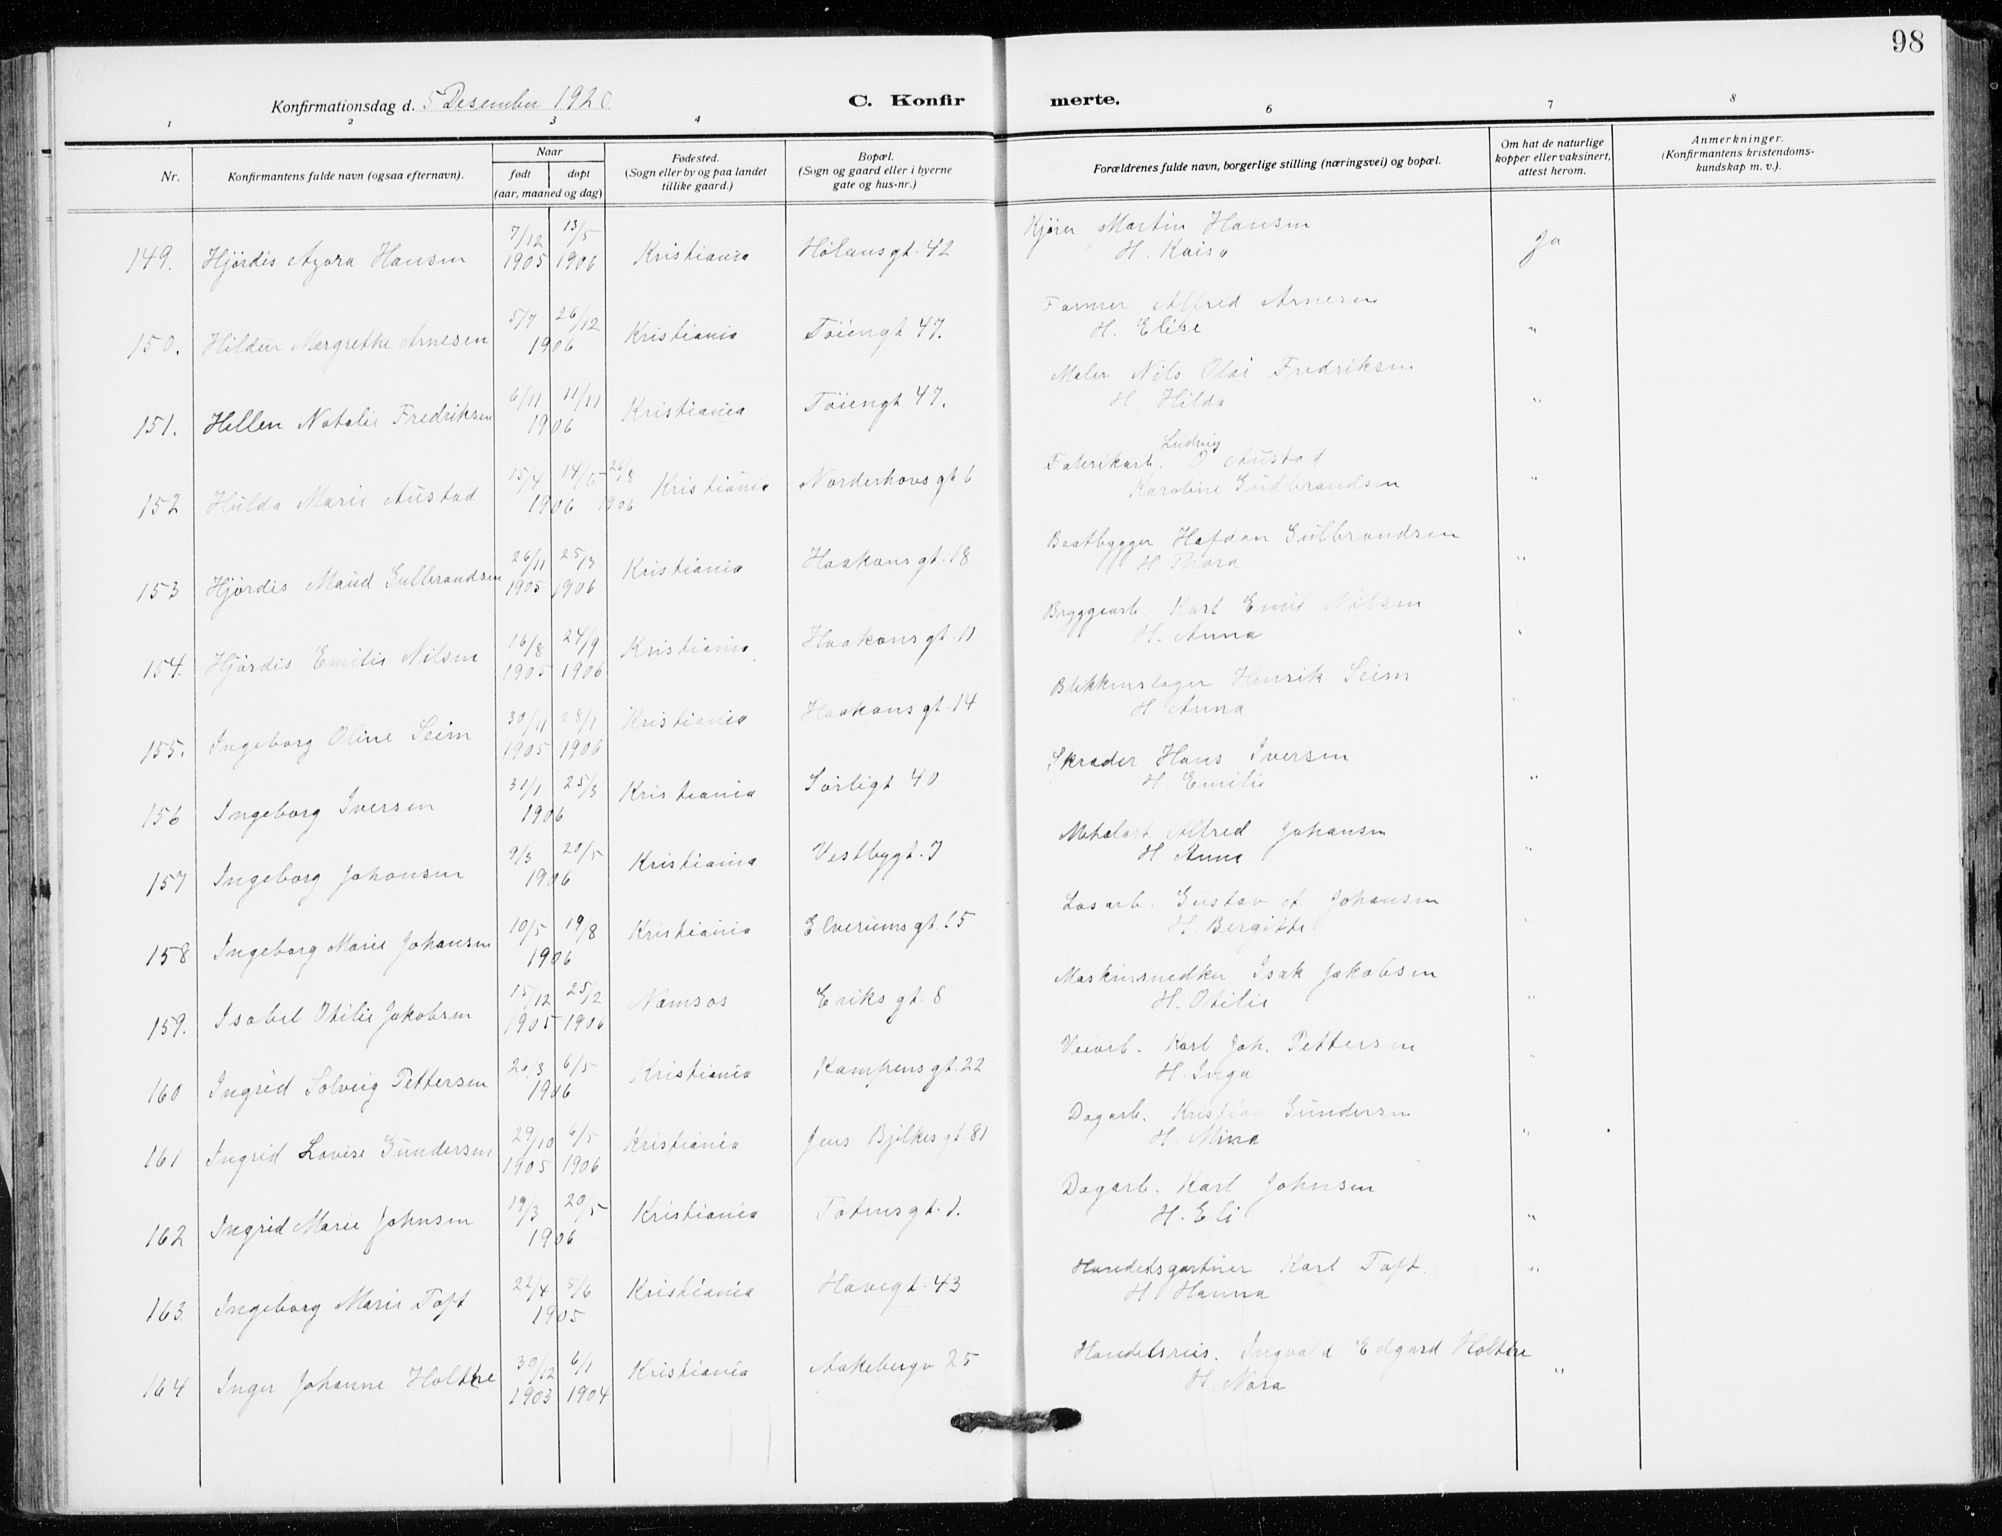 98
Konfirmationsdag d. 5 Desember 1920
C. Konfir merte.
1 2 3 4 6 7 8
Nr.
Konfirmantens fulde navn (ogsaa efternavn).
Naar
født døpt
(aar, maaned og dag)
Fødested.
(Sogn eller by og paa landet
tillike gaard.)
Bopæl.
(Sogn og gaard eller i byerne
gate og hus-nr.)
Forældrenes fulde navn, borgerlige stilling (næringsvei) og bopæl.
Om hat de naturlige
kopper eller vaksinert,
attest herom.
Anmerkninger.
(Konfirmantens kristendoms-
kundskap m. v.).
7/12 13/5 Kjører Martin Hansen
149. Hjördis Azora Hansen 1905 1906 Kristiania Hölansgt. 42 H. Kaisa Ja
5/7 26/12 Former Alfred Arnesen
150. Hildur Margrethe Arnesen 1906 Kristiania Töiengt 47. H. Elise "
6/11 11/11 Maler Nils Olai Fredriksen
151. Hellen Natalie Fredriksen 1906 Kristiania Töiengt 47. H Hilda "
Ludvig
15/4 14/6 26/8 Fabrikarb. O. Austad
152 Hulda Marie Austad 1906 1906 Kristiania Norderhovsgt 6 Karoline Gudbrandsen "
26/11 25/3 Baatbygger Hafdan Gulbrandsen
153 Hjördis Maud Gulbrandsen 1905 1906 Kristiania Haakonsgt. 18 H. Thora "
16/8 24/9 Bryggearb. Karl Emil Nilsen
154. Hjördis Emilie Nilsen 1905 1906 Kristiania Haakonsgt. 11 H. Anna "
30/11 28/1 Blikkenslager Henrik Seim
155. Ingeborg Oline Seim 1905 1906 Kristiania Haakonsgt. 14 H. Anna "
31/1 25/3 Skræder Hans Iversen
156 Ingeborg Iversen 1906 Kristiania Sörligt 40 H. Emilie "
9/3 20/5 Metalarb Alfred Johansen
157 Ingeborg Johansen 1906 Kristiania Vestbygt. 7 H. Anne "
10/5 19/8 Løsarb. Gustav A Johansen
158 Ingeborg Marie Johansen 1906 Kristiania Elverumsgt. 15 H. Bergitte "
15/12 25/2 Maskinsnedker Isak Jakobsen
159. Isabel Otilie Jakobsen 1905 1906 Namsos Eriksgt. 8 H. Otilie "
26/3 6/5 Veiarb. Karl Joh. Pettersen
160 Ingrid Solveig Pettersen 1906 Kristiania Kampensgt. 22 H. Inga "
29/10 6/5 Dagarb. Kristian Gundersen
161 Ingrid Lovise Gundersen 1905 1906 Kristiania Jens Bjelkesgt. 81 H. Mina "
19/3 20/5 Dagarb. Karl Johnsen
162 Ingrid Marie Johnsen 1906 Kristiania Totensgt. 1. H. Eli "
22/4 5/6 Handelsgartner Karl Toft.
163. Ingeborg Marie Toft 1905 Kristiania Havegt. 43 H Hanna "
30/12 6/1 Handelsreis. Ingvald Edgard Holthe
164 Inger Johanne Holthe 1903 1904 Kristiania Aakebergv 25 H. Nora "